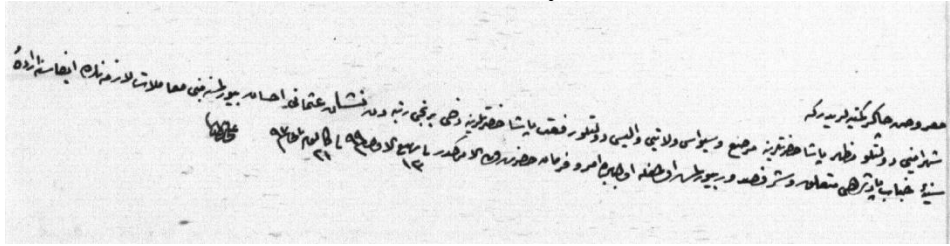 معروض چاكر كمينه لريدر كه
شهر امينى دولتلو مظهر پاشا حضرتلرينه مرصع و سيواس ولايتى واليسى دولتلو پاشا حضرتلرينه دخى برنجى رتبه دن نشان عثمانى احسان بيورلمسنه مبنى معاملات لازمه نك ايفاسنه اراده
سنيهٔ جناب پادشاهى متعلق و شرفصدور بيورلمش اولمغله اولبابده امر و فرمان حضرت ولى الامركدر فى ١٣ ربيع الاول ٩٩ و فى ٢١ كانون ثانى ٩٧